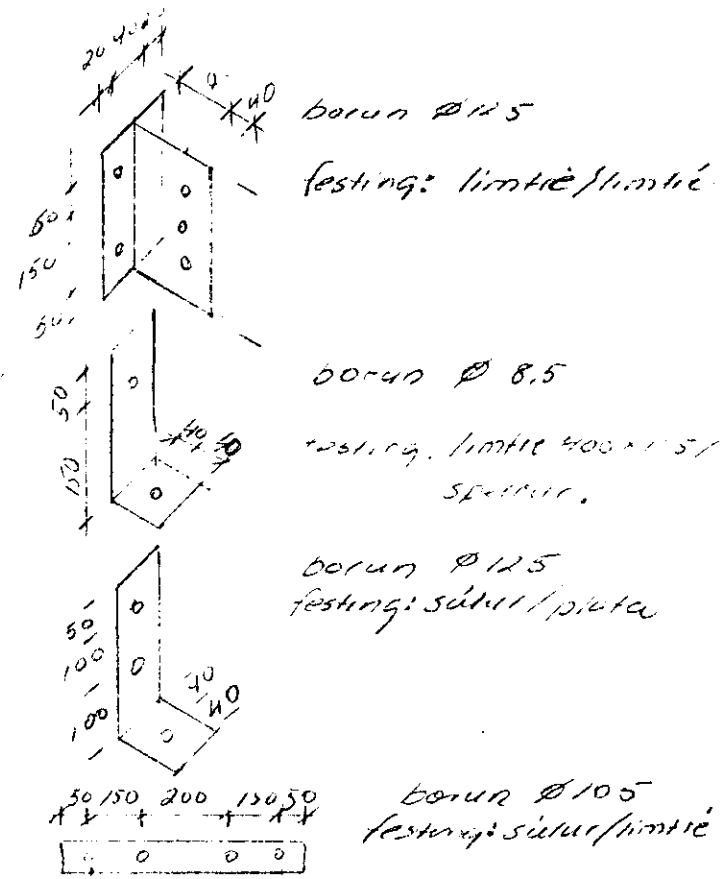 20 40 20
40
borun Ø 125
festing: limtré/limtré
50
150
50
borun Ø 8.5
50
150
40 40
festing. limtré 400 x /
sperrur.
borun Ø 125
festing: súlur/plata
50
100
100
40 40
50 150 200 150 50
borun Ø 105
festing: súlur/limtré